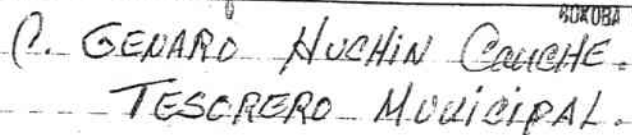 BOKOBA
C. GENARO HUCHIN CAUCHE.
TESORERO MUNICIPAL.